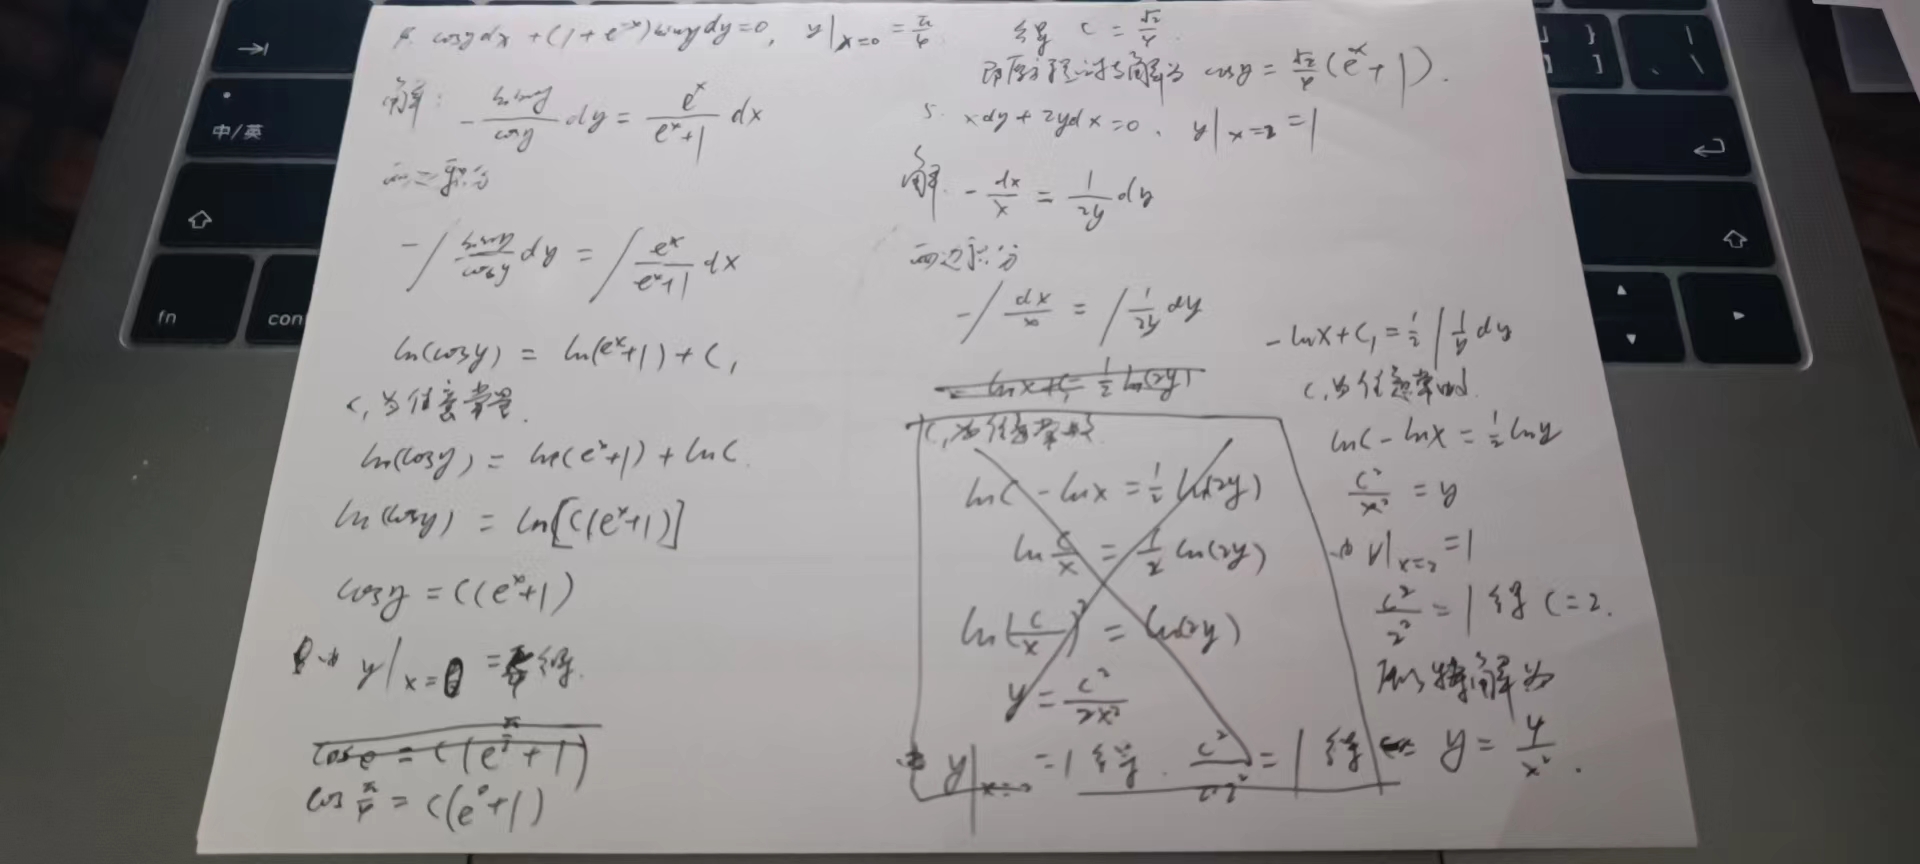 4. cosy dx + (1+e^-x) siny dy = 0, y|x=0 = π/4
解: - siny/cosy dy = e^x/(e^x+1) dx
两边积分
-∫ siny/cosy dy = ∫ e^x/(e^x+1) dx
ln(cosy) = ln(e^x+1) + C₁
C₁为任意常量.
ln(cosy) = ln(e^x+1) + lnC.
ln(cosy) = ln[C(e^x+1)]
cosy = C(e^x+1)
由 y|x=0 = π/4 得.
cos π/4 = C(e^0+1)
得 C = √2/4.
即原方程的特解为 cosy = √2/4 (e^x+1).
5. xdy + 2ydx = 0, y|x=2 = 1
解. - dx/x = 1/2y dy
两边积分
-∫ dx/x = ∫ 1/2y dy
- lnx + C₁ = 1/2 ln(2y)
C₁为任意常数.
lnC - lnx = 1/2 ln(2y)
ln C/x = 1/2 ln(2y)
ln(C/x)² = ln(2y)
y = C²/2x²
由 y|x=2 = 1 得. C²/2·2² = 1 得
-lnx + C₁ = 1/2 ∫ 1/y dy
C₁为任意常
lnC - lnx = 1/2 lny
C²/x² = y
由 y|x=2 = 1
C²/2² = 1 得 C = 2.
所以特解为
y = 4/x².
中/英
fn
con